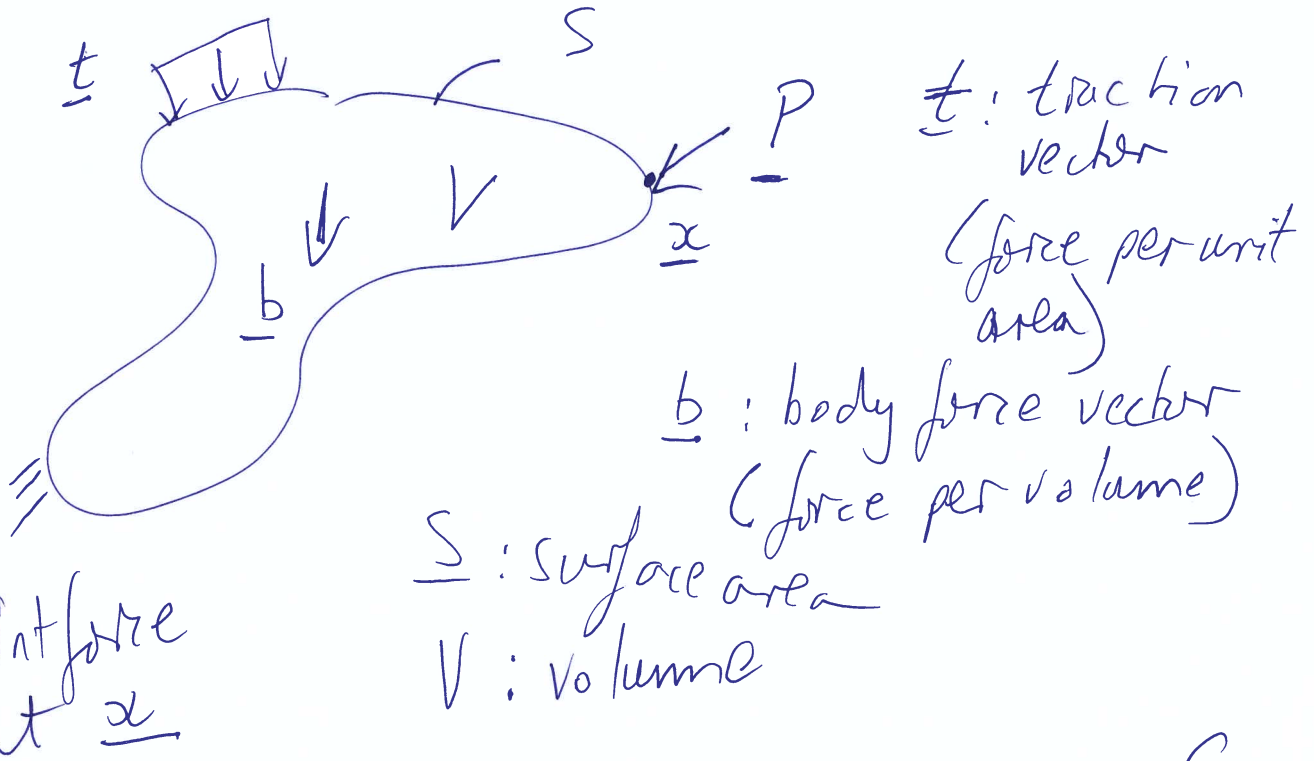 t
S
P
V
x
b
t : traction
vector
(force per unit
area)
b : body force vector
(force per volume)
S : surface area
V : volume
int force
t x